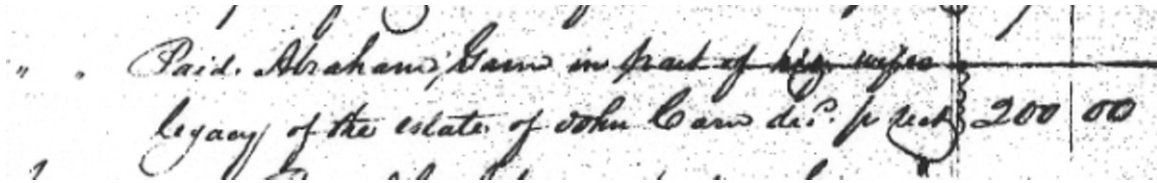 " " Paid. Abraham Garn in part of his wifes
legacy of the estate of John Carn dec. p rect 200 00